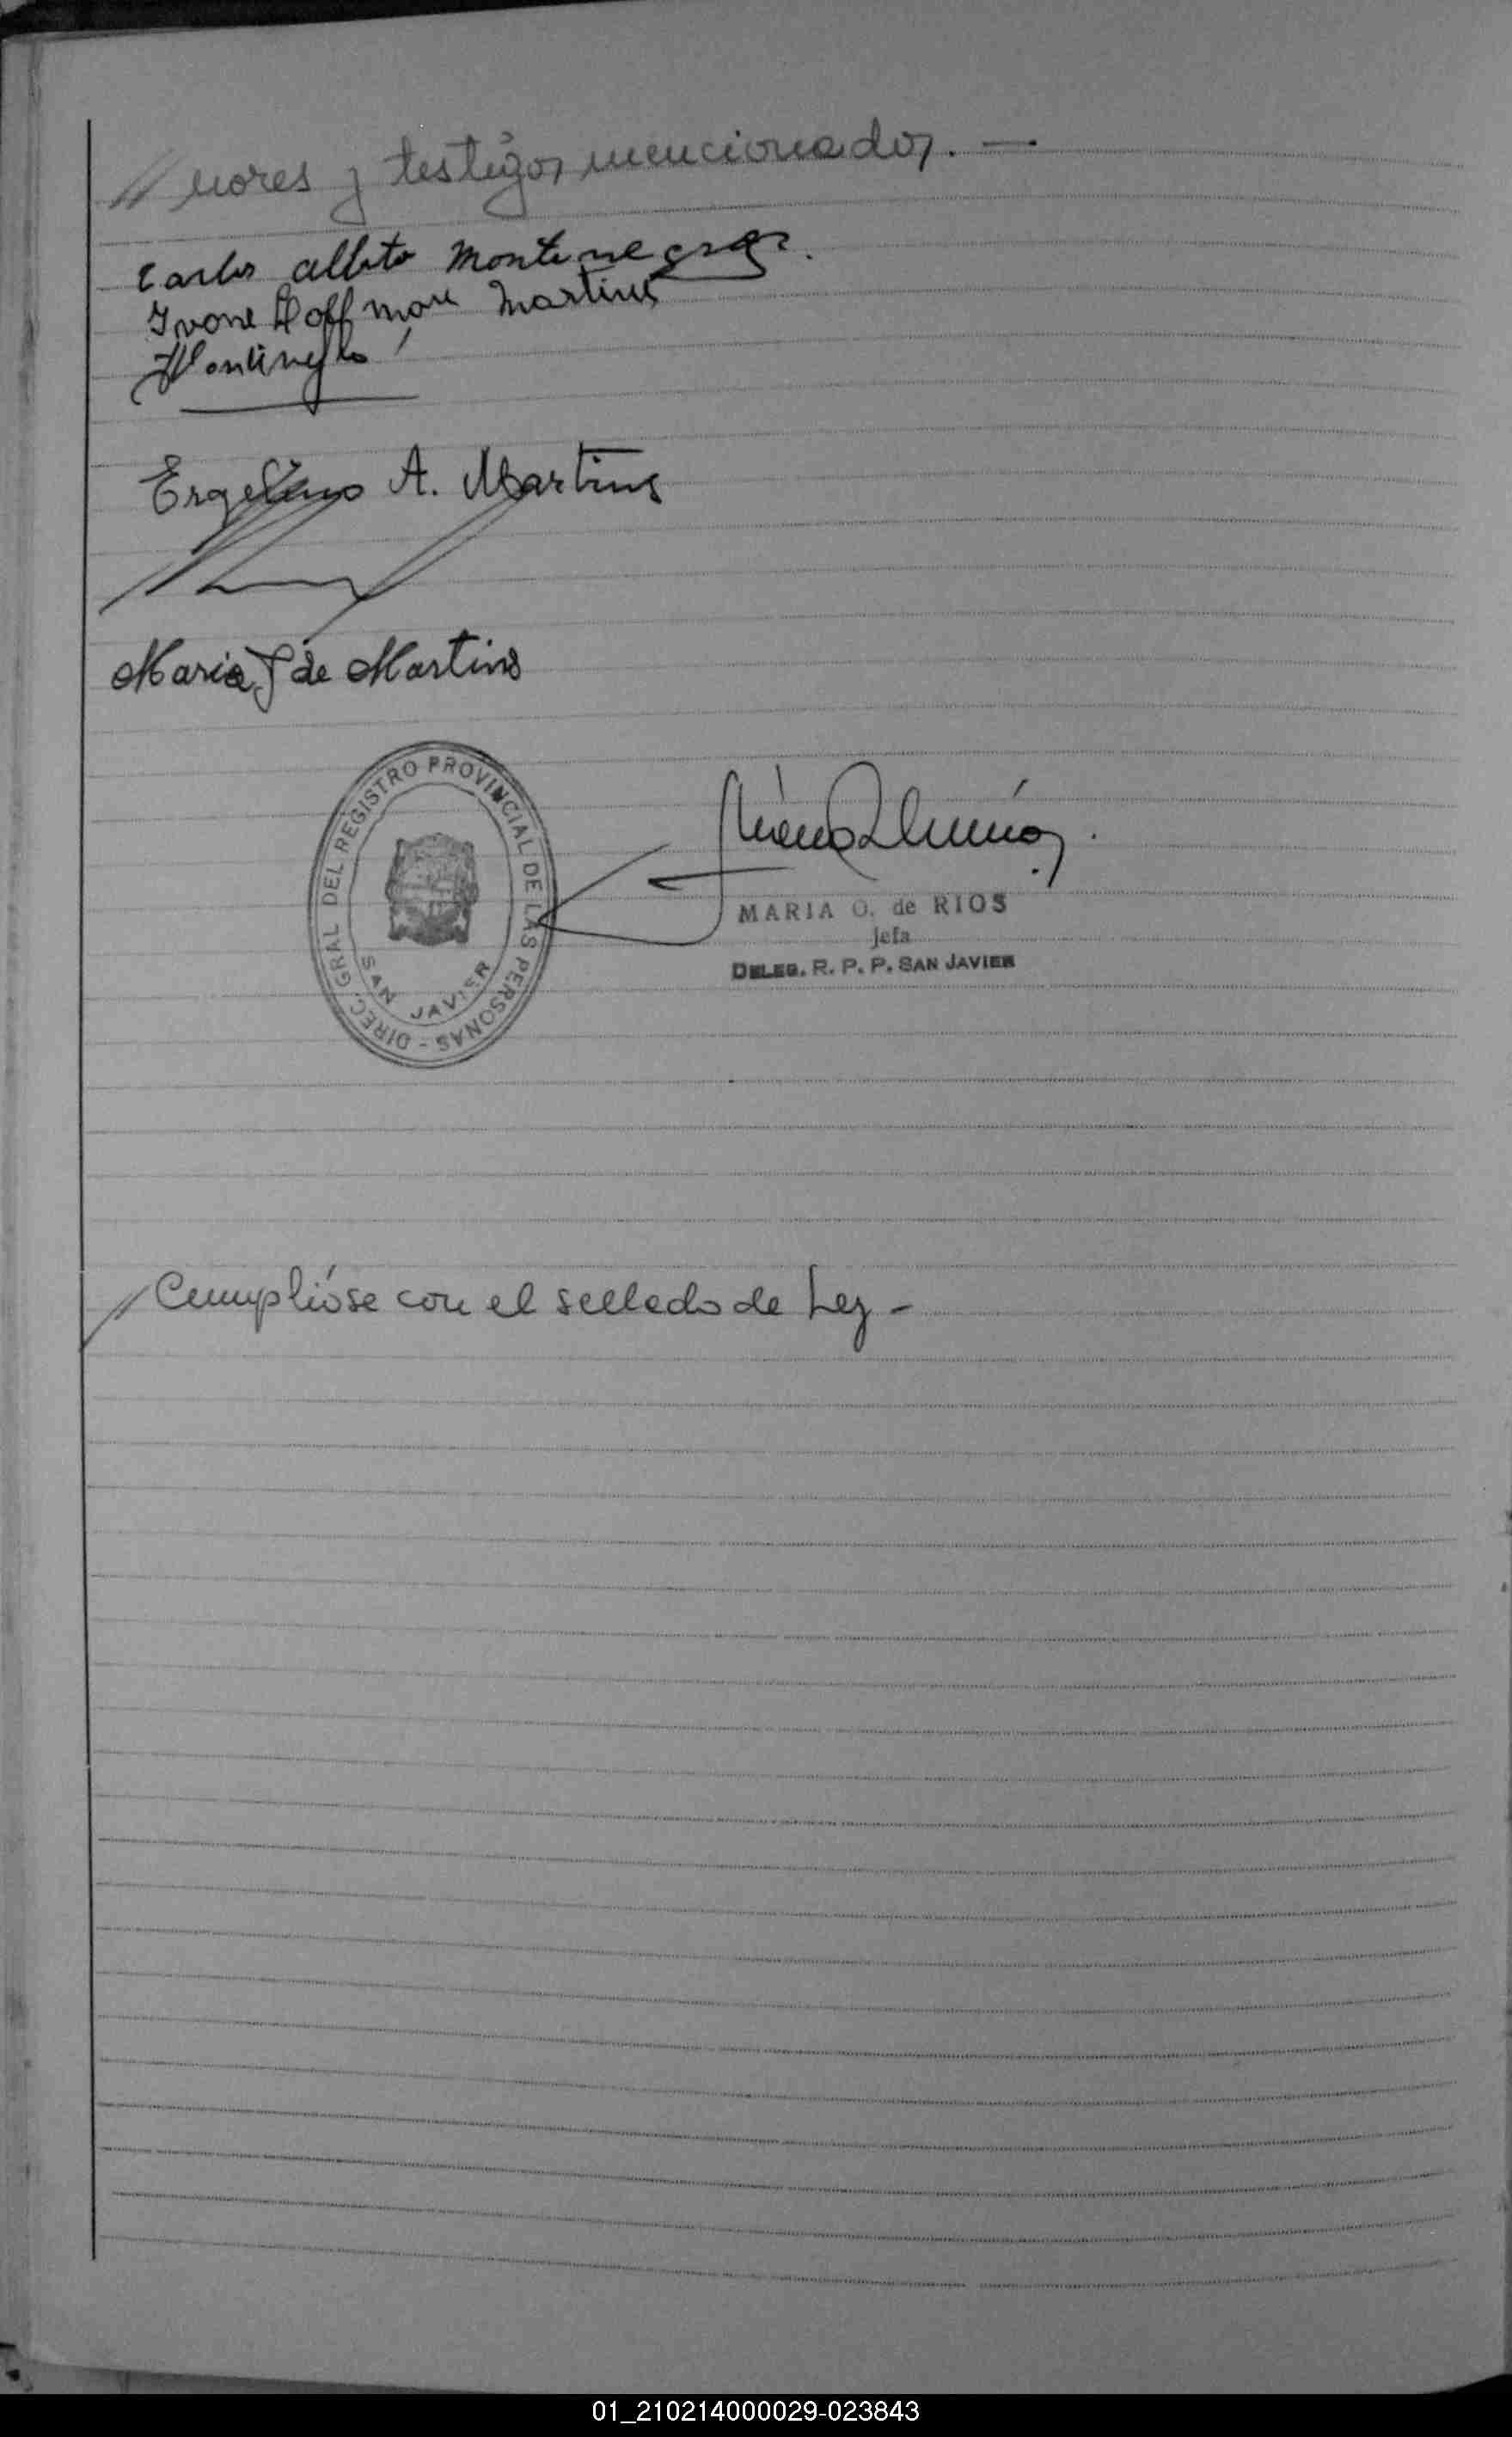 // nores y testigos mencionados. —
Carlos alberto Montenegro.
Ivone Hoffman Martins
Ergelino A. Martins
Maria J de Martins
DIREC. GRAL DEL REGISTRO PROVINCIAL DE LAS PERSONAS -
SAN JAVIER
MARIA O. de RIOS
Jefa
DELEG. R. P. P. SAN JAVIER
// Cumplióse con el sellado de Ley -
01_210214000029-023843